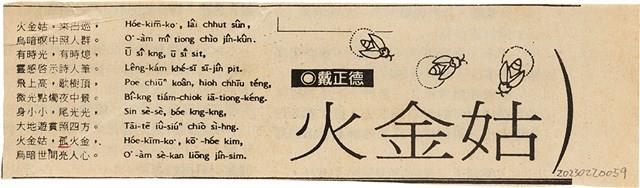 火金姑，來出巡，
烏暗暝中照人群。
有時光，有時熄，
靈感啓示詩人筆。
飛上高，歇樹頂，
微光點燭夜中景。
身小小，尾光光，
大地遊賞照四方。
火金姑，孤火金，
烏暗世間亮人心。
Hóe-kim-ko͘, lâi chhut sûn,
O͘-àm mî tiong chìo jîn-kûn.
Ū sî kng, ū sî sit,
Lêng-kám khé-sī si-jîn pit.
Poe chiūⁿ koân, hioh chhīu téng,
Bî-kng tiám-chiok iā-tiong-kéng.
Sin sè-sè, bóe kng-kng,
Tāi-tē iû-siúⁿ chìo sì-hng.
Hóe-kīm-ko͘, kō͘-hóe kim,
O͘-àm sè-kan liōng jîn-sim.
戴正德
火金姑
20230220059